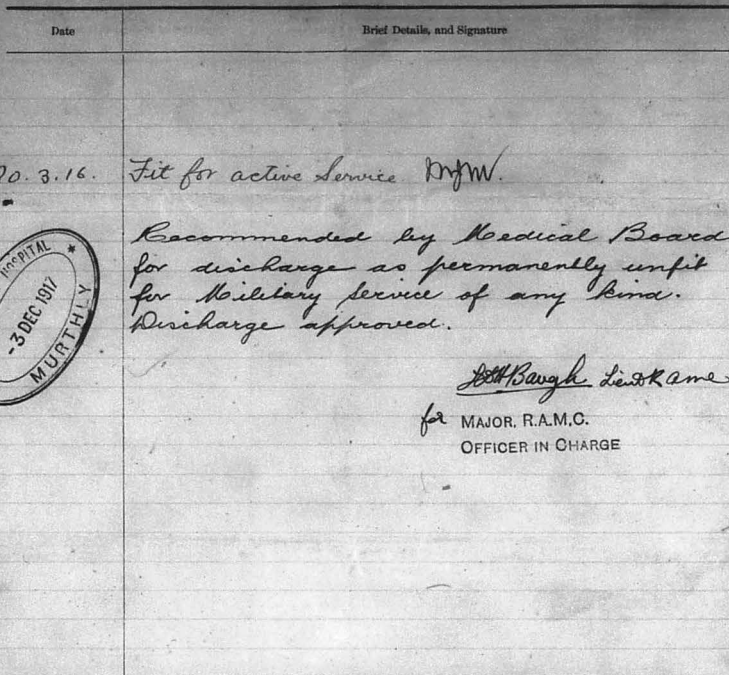 Date
Brief Details, and Signature
0.3.16.
Fit for active Service
HOSPITAL *
-3 DEC 1917
MURTHLY
Recommended by Medical Board
for discharge as permanently unfit
for Military Service of any kind.
Discharge approved.
Baugh Lieut R a m c
for MAJOR, R.A.M.C.
OFFICER IN CHARGE